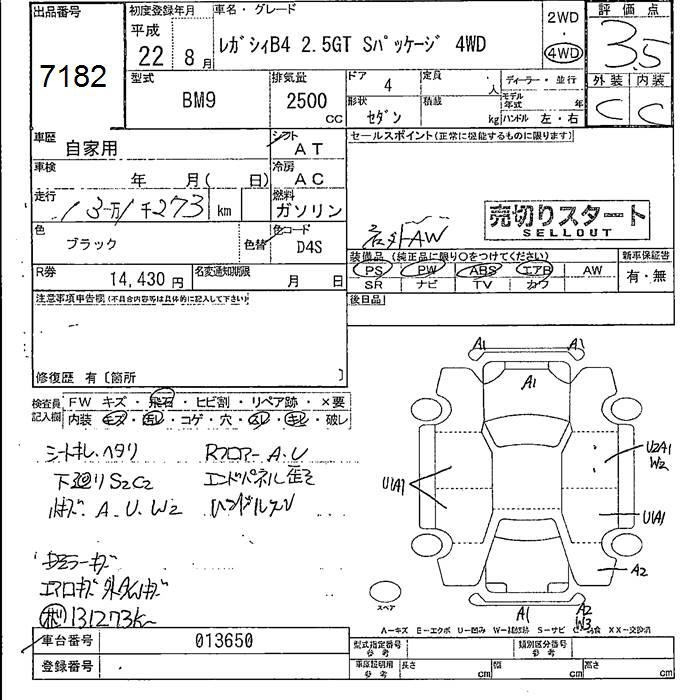 出品番号
7182
初度登録年月
平成
22 8月
車名・グレード
レガシィB4 2.5GT Sパッケージ 4WD
2WD
・
4WD
評価点
3.5
外装 内装
C C
型式
BM9
排気量
2500 CC
ドア 4
定員 人
ディーラー・並行
モデル年式 年
形状 セダン
積載 kg
ハンドル 左・右
車歴
自家用
シフト
AT
車検
年 月( 日)
冷房
AC
走行
13万1千273 km
燃料
ガソリン
色
ブラック
色替
色コード
D4S
R券
14,430円
名変通知期限
月 日
セールスポイント(正常に機能するものに限ります)
売切りスタート
SELLOUT
社外AW
装備品(純正品に限り○をつけてください)
PS PW ABS エアB AW
SR ナビ TV カワ
新車保証書
有・無
後日品
注意事項申告欄(不具合内容等は具体的に記入して下さい)
修復歴 有〔箇所 〕
検査員記入欄
FW キズ・飛石・ヒビ割・リペア跡・×要
内装 キズ・汚レ・コゲ・穴・スレ・キレ・破レ
シートキレ、ヘタリ
Rフロアー A.U
下廻りS2C2
エンドパネル歪ミ
キズ A.U.W2
ハンドルスレ
エアロキズ
131273K
A1 A1
A1
U2A1
W2
U1A1
U1A1
A2
スペア
A1
A2
W3
A-キズ E-エクボ U-凹み W-補修跡 S-サビ C-腐食 XX-交換済
車台番号
013650
登録番号
型式指定番号
参考
類別区分番号
参考
車庫証明用
参考
長さ cm
幅 cm
高さ cm